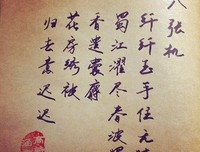 八张机
纤纤玉手住无
蜀江濯尽春波
香遗囊麝
花房绣被
归去意迟迟